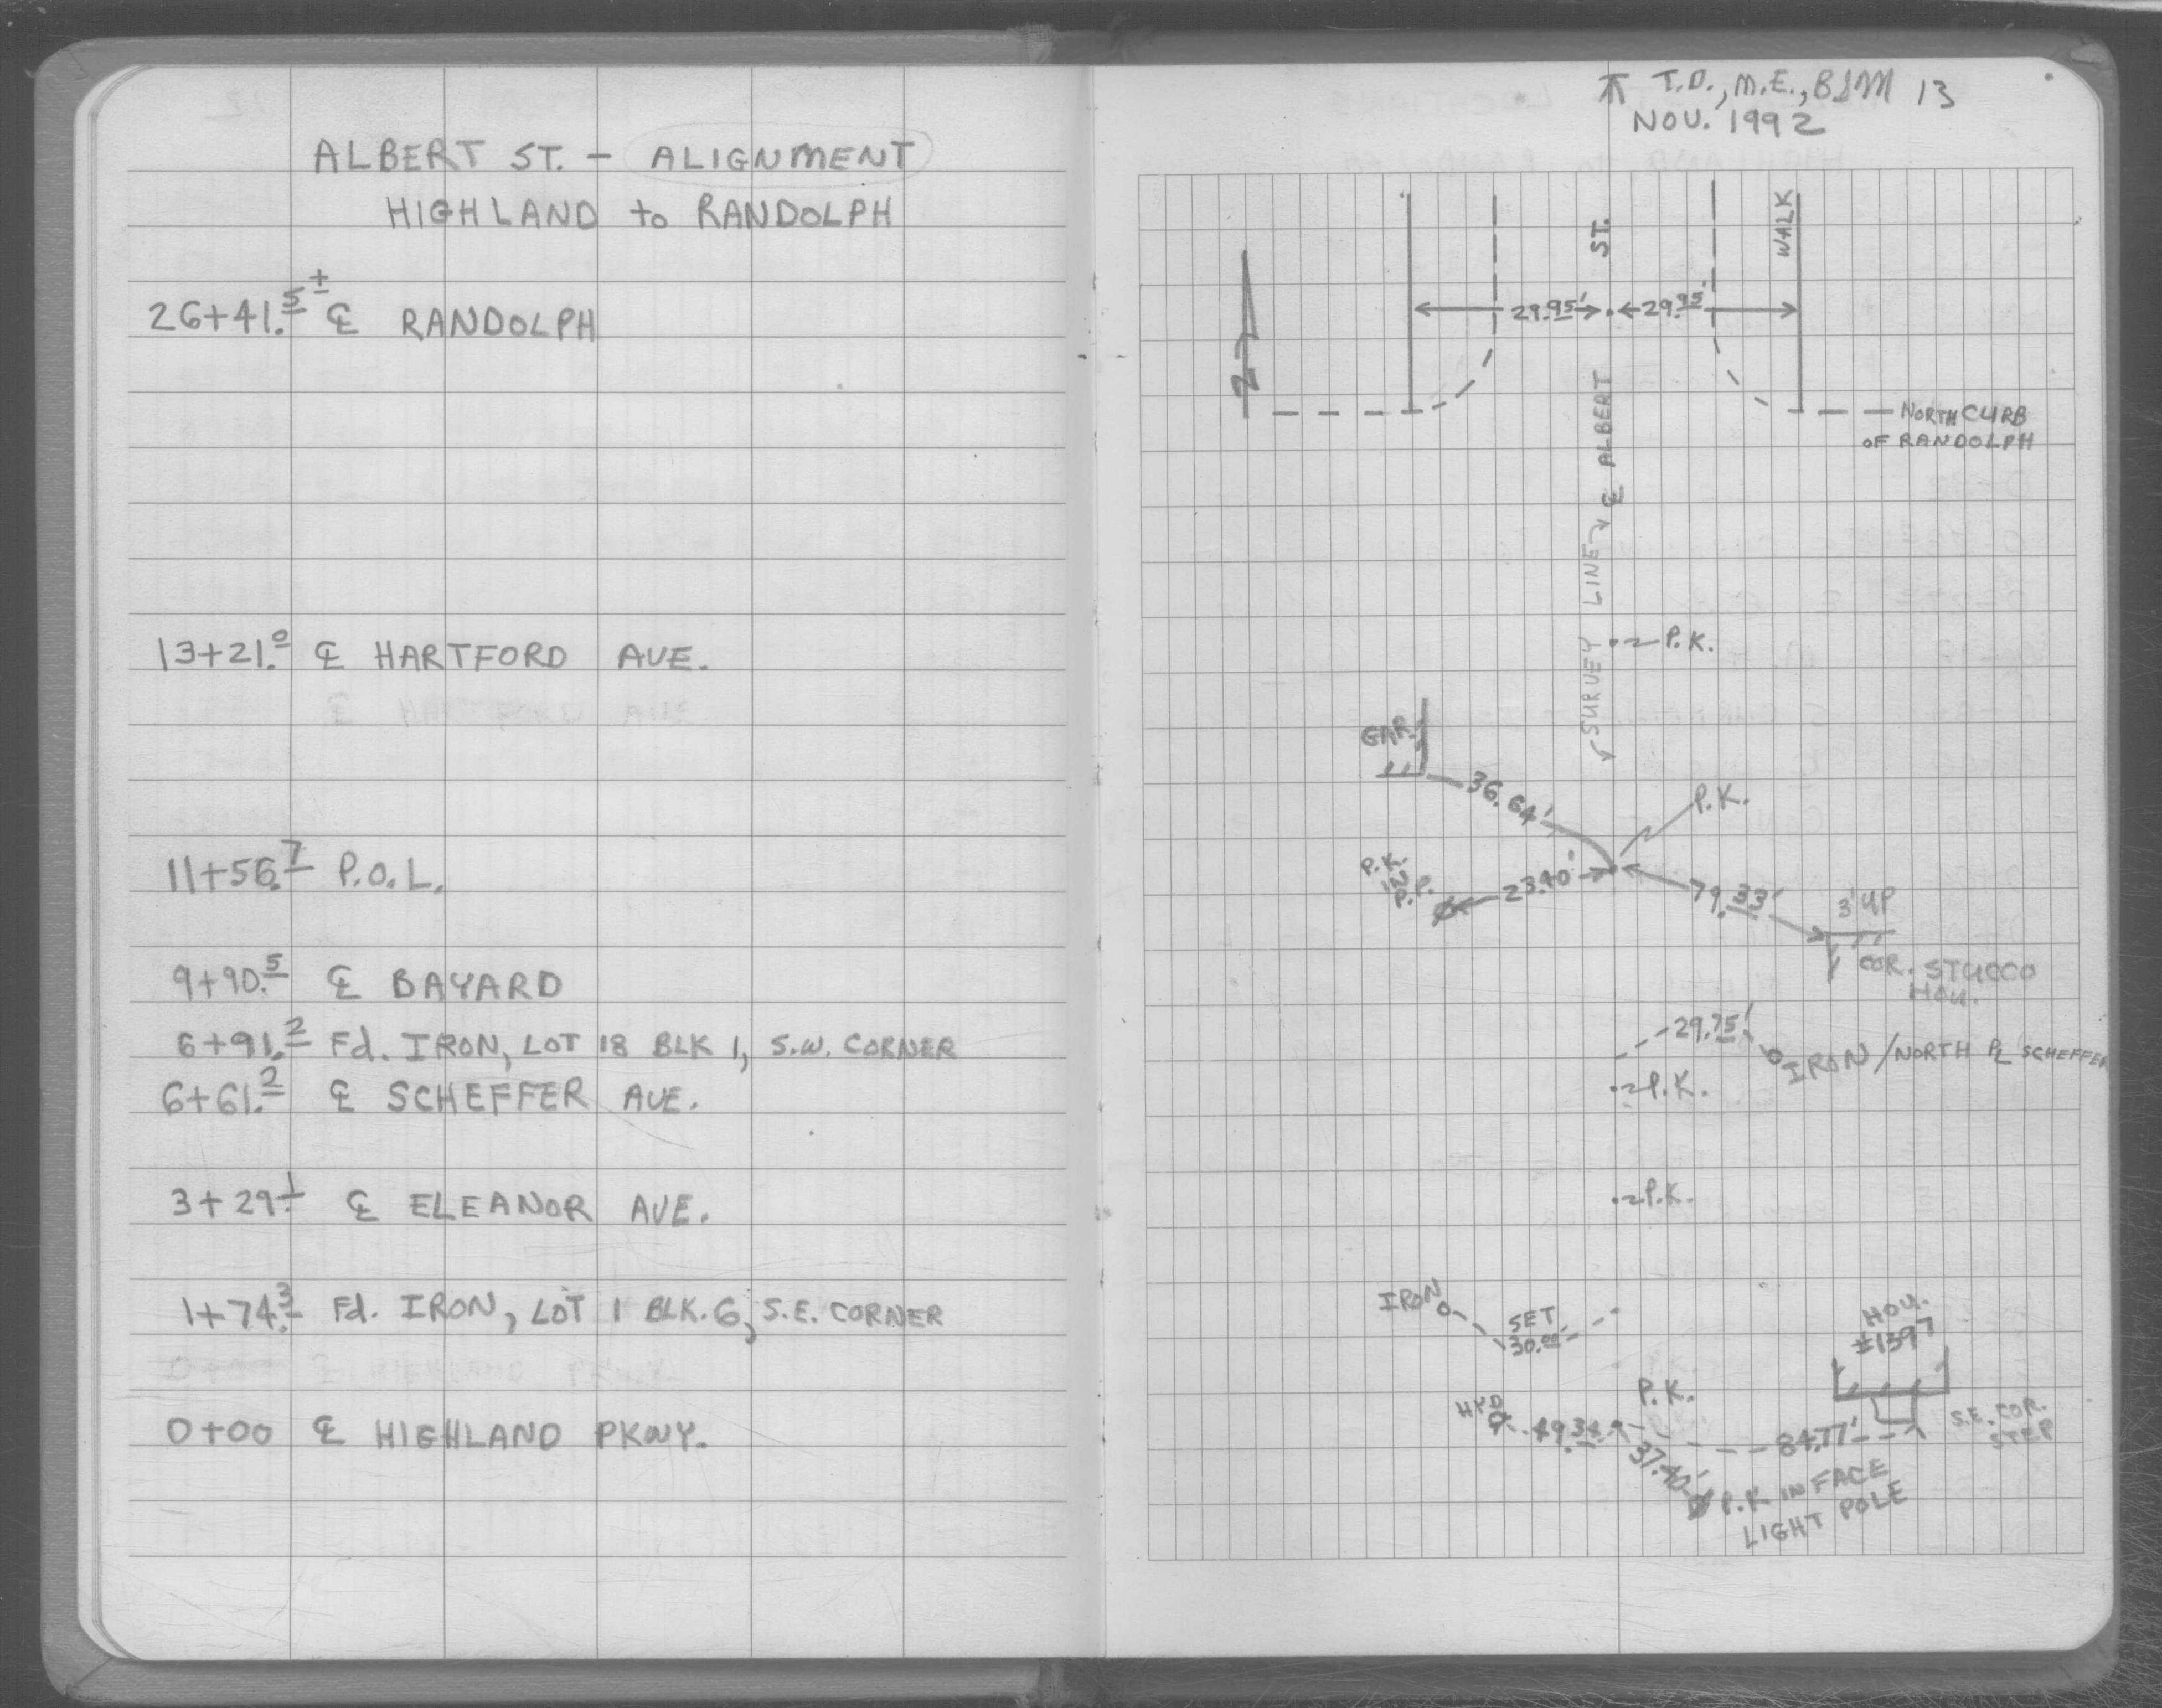 ALBERT ST. - ALIGNMENT
HIGHLAND to RANDOLPH
26+41.5± ℄ RANDOLPH
13+21.0 ℄ HARTFORD AVE.
11+56.7 P.O.L.
9+90.5 ℄ BAYARD
6+91.2 Fd. IRON, LOT 18 BLK 1, S.W. CORNER
6+61.2 ℄ SCHEFFER AVE.
3+29.1 ℄ ELEANOR AVE.
1+74.3 Fd. IRON, LOT 1 BLK. 6, S.E. CORNER
0+00 ℄ HIGHLAND PKWY.
T.D., M.E., 13
NOV. 1992
WALK
ST.
29.95' 29.95'
℄ ALBERT
NORTH CURB
OF RANDOLPH
SURVEY LINE
P.K.
GAR.
36.64'
P.K.
P.K.
IN
P.P.
23.40'
79.33'
3' UP
COR. STUCCO
HOU.
29.75'
IRON/NORTH PL SCHEFFER
P.K.
P.K.
IRON
SET
30.00'
HOU.
#1397
P.K.
HYD
49.34
84.77'
S.E. COR.
STEP
37.40'
P.K. IN FACE
LIGHT POLE